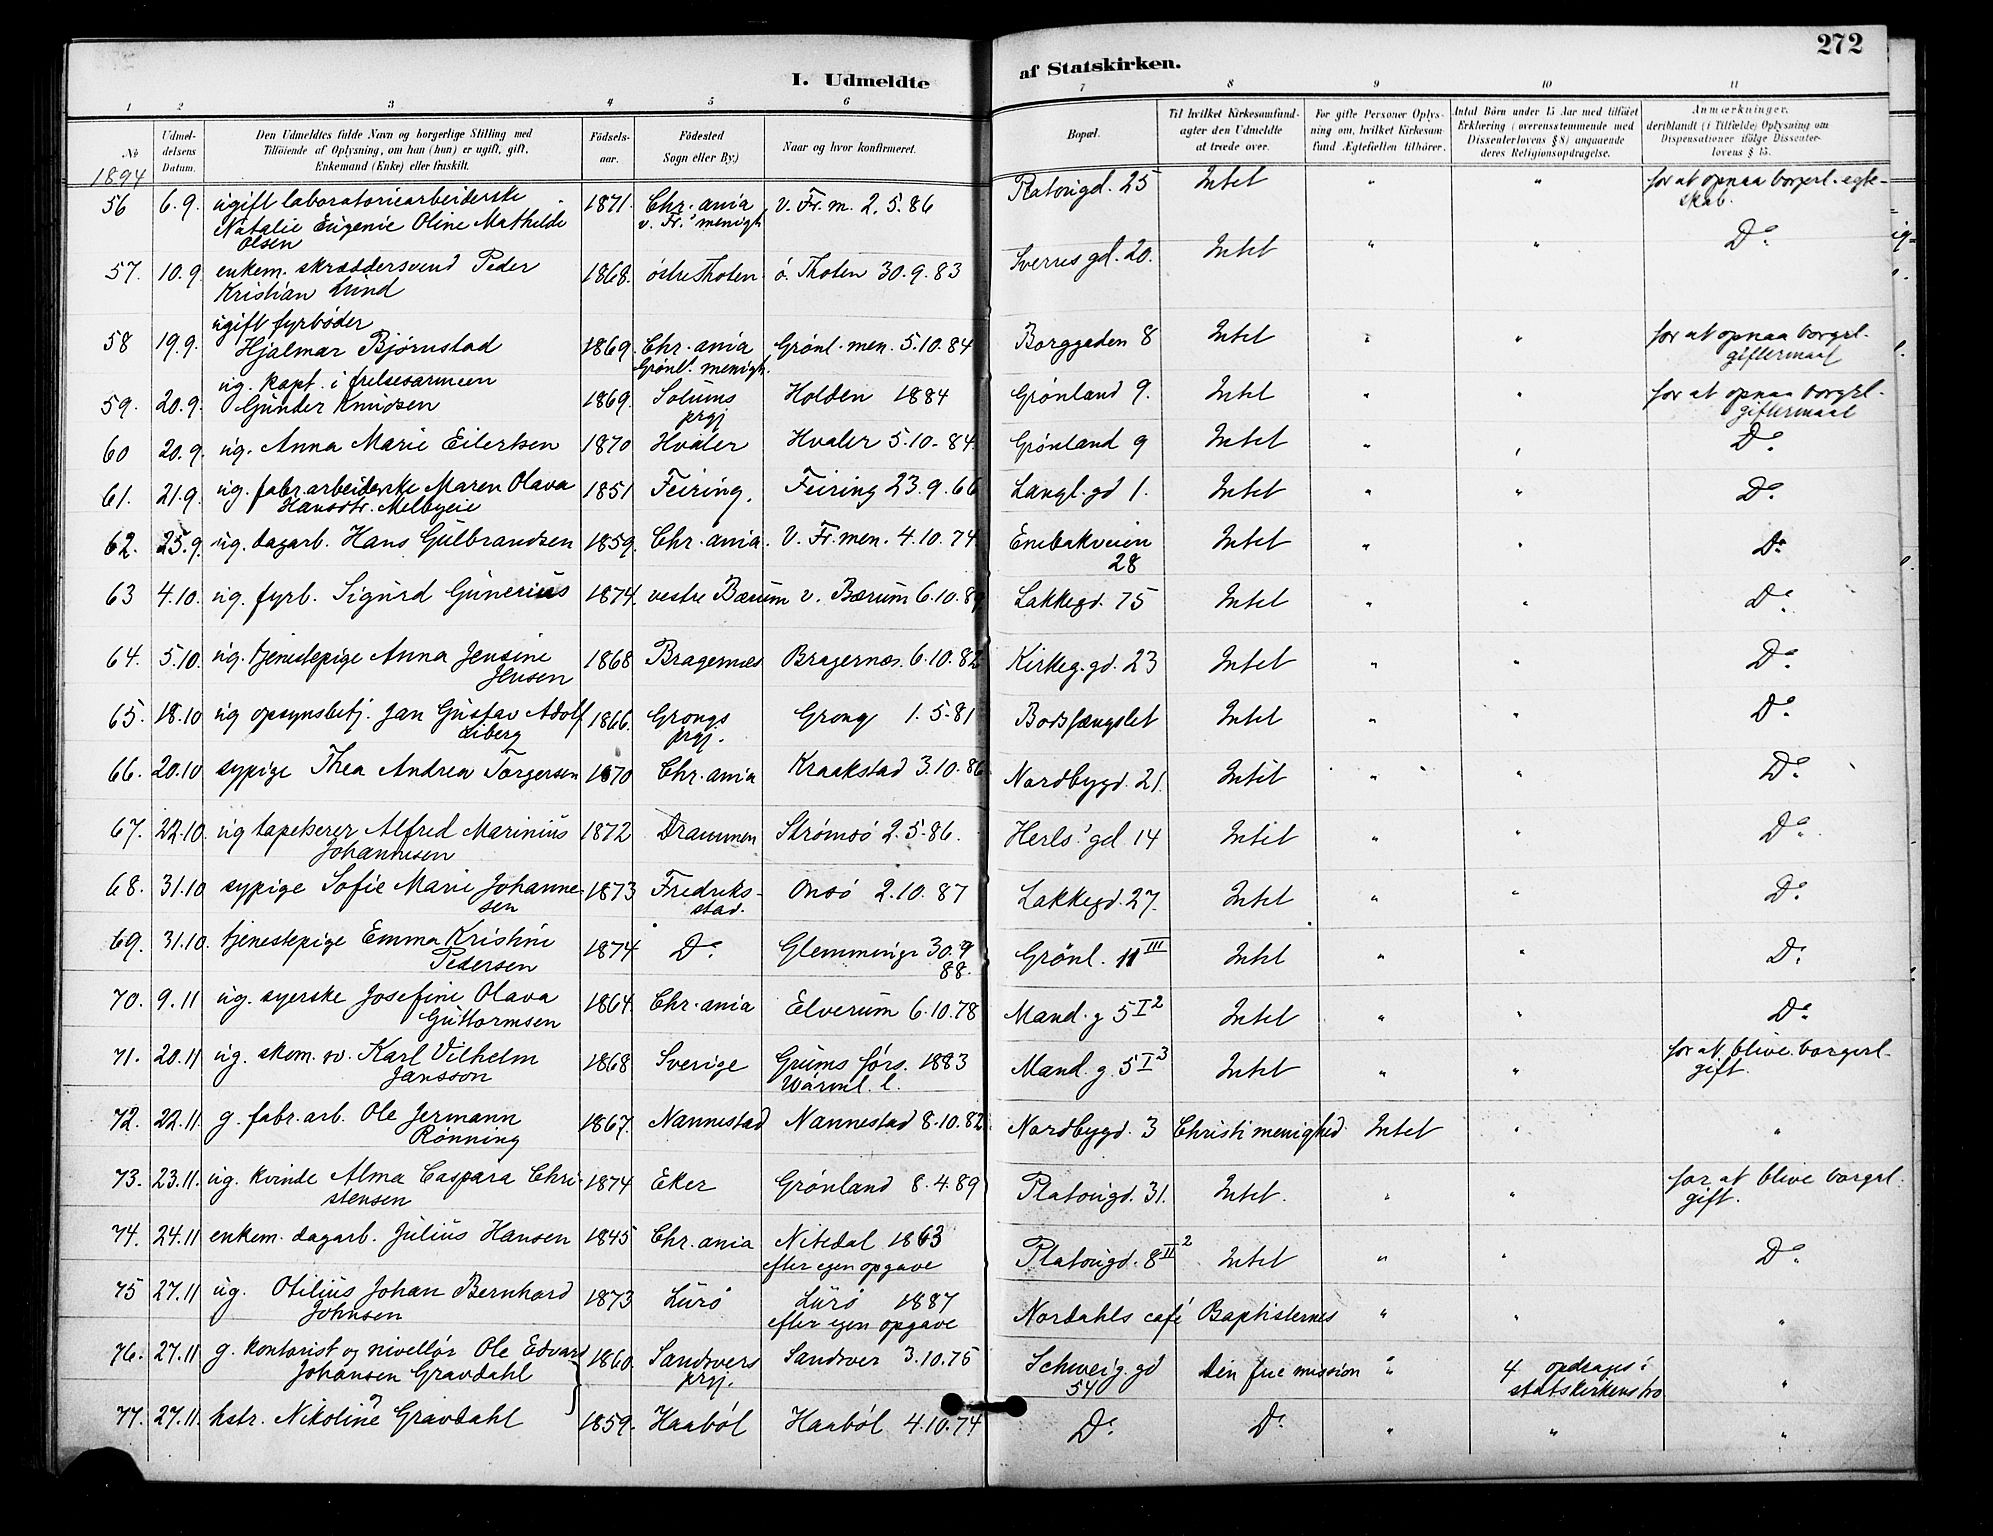 272
I. Udmeldte af Statskirken.
1 2 3 4 5 6 7 8 9 10 11
No
Udmeldelsens Datum.
Den Udmeldtes fulde Navn og borgerlige Stilling med Tilføiende af Oplysning, om han (hun) er ugift, gift, Enkemand (Enke) eller fraskilt.
Fødselsaar.
Fødested Sogn eller By.)
Naar og hvor konfirmeret.
Bopæl.
Til hvilket Kirkesamfund- agter den Udmeldte at træde over.
For gifte Personer Oplysning om, hvilket Kirkesamfund Ægtefællen tilhører.
Antal Børn under 15 Aar med tilføiet Erklæring (overensstemmende med Dissenterlovens § 8) angaaende deres Religionsopdragelse.
Anmærkninger, deriblandt (i Tilfælde) Oplysning om Dispensationer ifølge Dissenterlovens § 15.
1894
56 6.9. ugift laboratoriearbeiderske Natalie Eugenie Oline Mathilde Olsen 1871. Chr.ania v. Fr.' menigh. V. Fr. m. 2.5.86 Platousgd. 25 Intet " " for at opnaa borgerl. egteskab.
57. 10.9. enkem. skræddersvend Peder Kristian Lund 1868. østre Thoten ø. Thoten 30.9.83 Sverres gd. 20. Intet " " Do.
58 19.9. ugift fyrbøder Hjalmar Bjørnstad 1869. Chr.ania Grønl. menigh. Grønl. men. 5.10.84 Borggaden 8 Intet " " for at opnaa borgerl. giftermaal
59. 20.9. ug. kapt. i frelsesarmeen Gunder Knudsen 1869. Solums prgj Holden 1884 Grønland 9. Intet " " for at opnaa borgerl. giftermaal
60 20.9. ug. Anna Marie Eilertsen 1870 Hvaler Hvaler 5.10.84 Grønland 9 Intet " " Do.
61. 21.9. ug. fabr.arbeiderske Maren Olava Hansdtr. Melbyeie 1851 Feiring. Feiring 23.9.66 Langl. gd 1. Intet " " Do.
62. 25.9. ug. dagarb. Hans Gulbrandsen 1859. Chr.ania. V. Fr. men. 4.10.74 Enebakveien 28 Intet " " Do.
63 4.10. ug. fyrb. Sigurd Gunerius 1874. vestre Bærum v. Bærum 6.10.89 Lakkegd. 75 Intet " " Do.
64. 5.10. ug. tjenestepige Anna Jensine Jensen 1868 Bragernæs Bragernæs. 6.10.82 Kirkeg. gd. 23 Intet " " Do.
65. 18.10 ug opsynsbetj. Jan Gustav Adolf Liberg 1866. Grongs prgj. Grong 1.5.81 Bodsfængslet Intet " " Do.
66. 20.10 sypige Thea Andrea Torgersen 1870 Chr.ania Kraakstad 3.10.86 Nordbygd. 21. Intet " " Do.
67. 22.10. ug tapetserer Alfred Marinius Johannesen 1872 Drammen Strømsø 2.5.86. Herls' gd. 14 Intet " " Do.
68. 31.10 sypige Sofie Marie Johannesen 1873 Fredriksstad. Onsø 2.10.87 Lakkegd. 27. Intet " " Do.
69. 31.10. tjenestepige Emma Kristine Pedersen 1874 Do. Glemminge 30.9 88. Grønl. 11 III Intet " " Do.
70. 9.11 ug. syerske Josefine Olava Guttormsen 1864. Chr.ania Elverum 6.10.78 Mand. g 5 I 2 Intet " " Do.
71. 20.11 ug. skom. sv. Karl Vilhelm Jansson 1868 Sverige Grums førs. 1883 Wärml. l. Mand. g. 5 I 3 Intet " " for at blive borgerl. gift.
72. 22.11. g. fabr. arb. Ole Jermann Rønning 1867. Nannestad Nannestad 8.10.82. Nordbygd. 3 Christi menighed Intet " "
73. 23.11. ug. kvinde Alma Caspara Christensen 1874 Eker Grønland 8.4.89 Platousgd. 31. Intet. " " for at blive borgerl. gift.
74. 24.11 enkem. dagarb. Julius Hansen 1845 Chr.ania Nitedal 1863 efter egen opgave Platousgd. 8 II 2 Intet " " Do.
75 27.11 ug. Otilius Johan Bernhard Johnsen 1873 Lurø Lurø 1887 efter egen opgave Nordahls café Baptisternes " " "
76. 27.11 g. kontorist og nivellør Ole Edvard Johansen Gravdahl 1860. Sandsvers prgj. Sandsver 3.10.75 Schweig. gd 54 Den frie mission " 4 opdrages i statskirkens tro "
77. 27.11 hstr. Nikoline Gravdahl 1859. Haabøl Haabøl 4.10.74 Do. Do. " " "